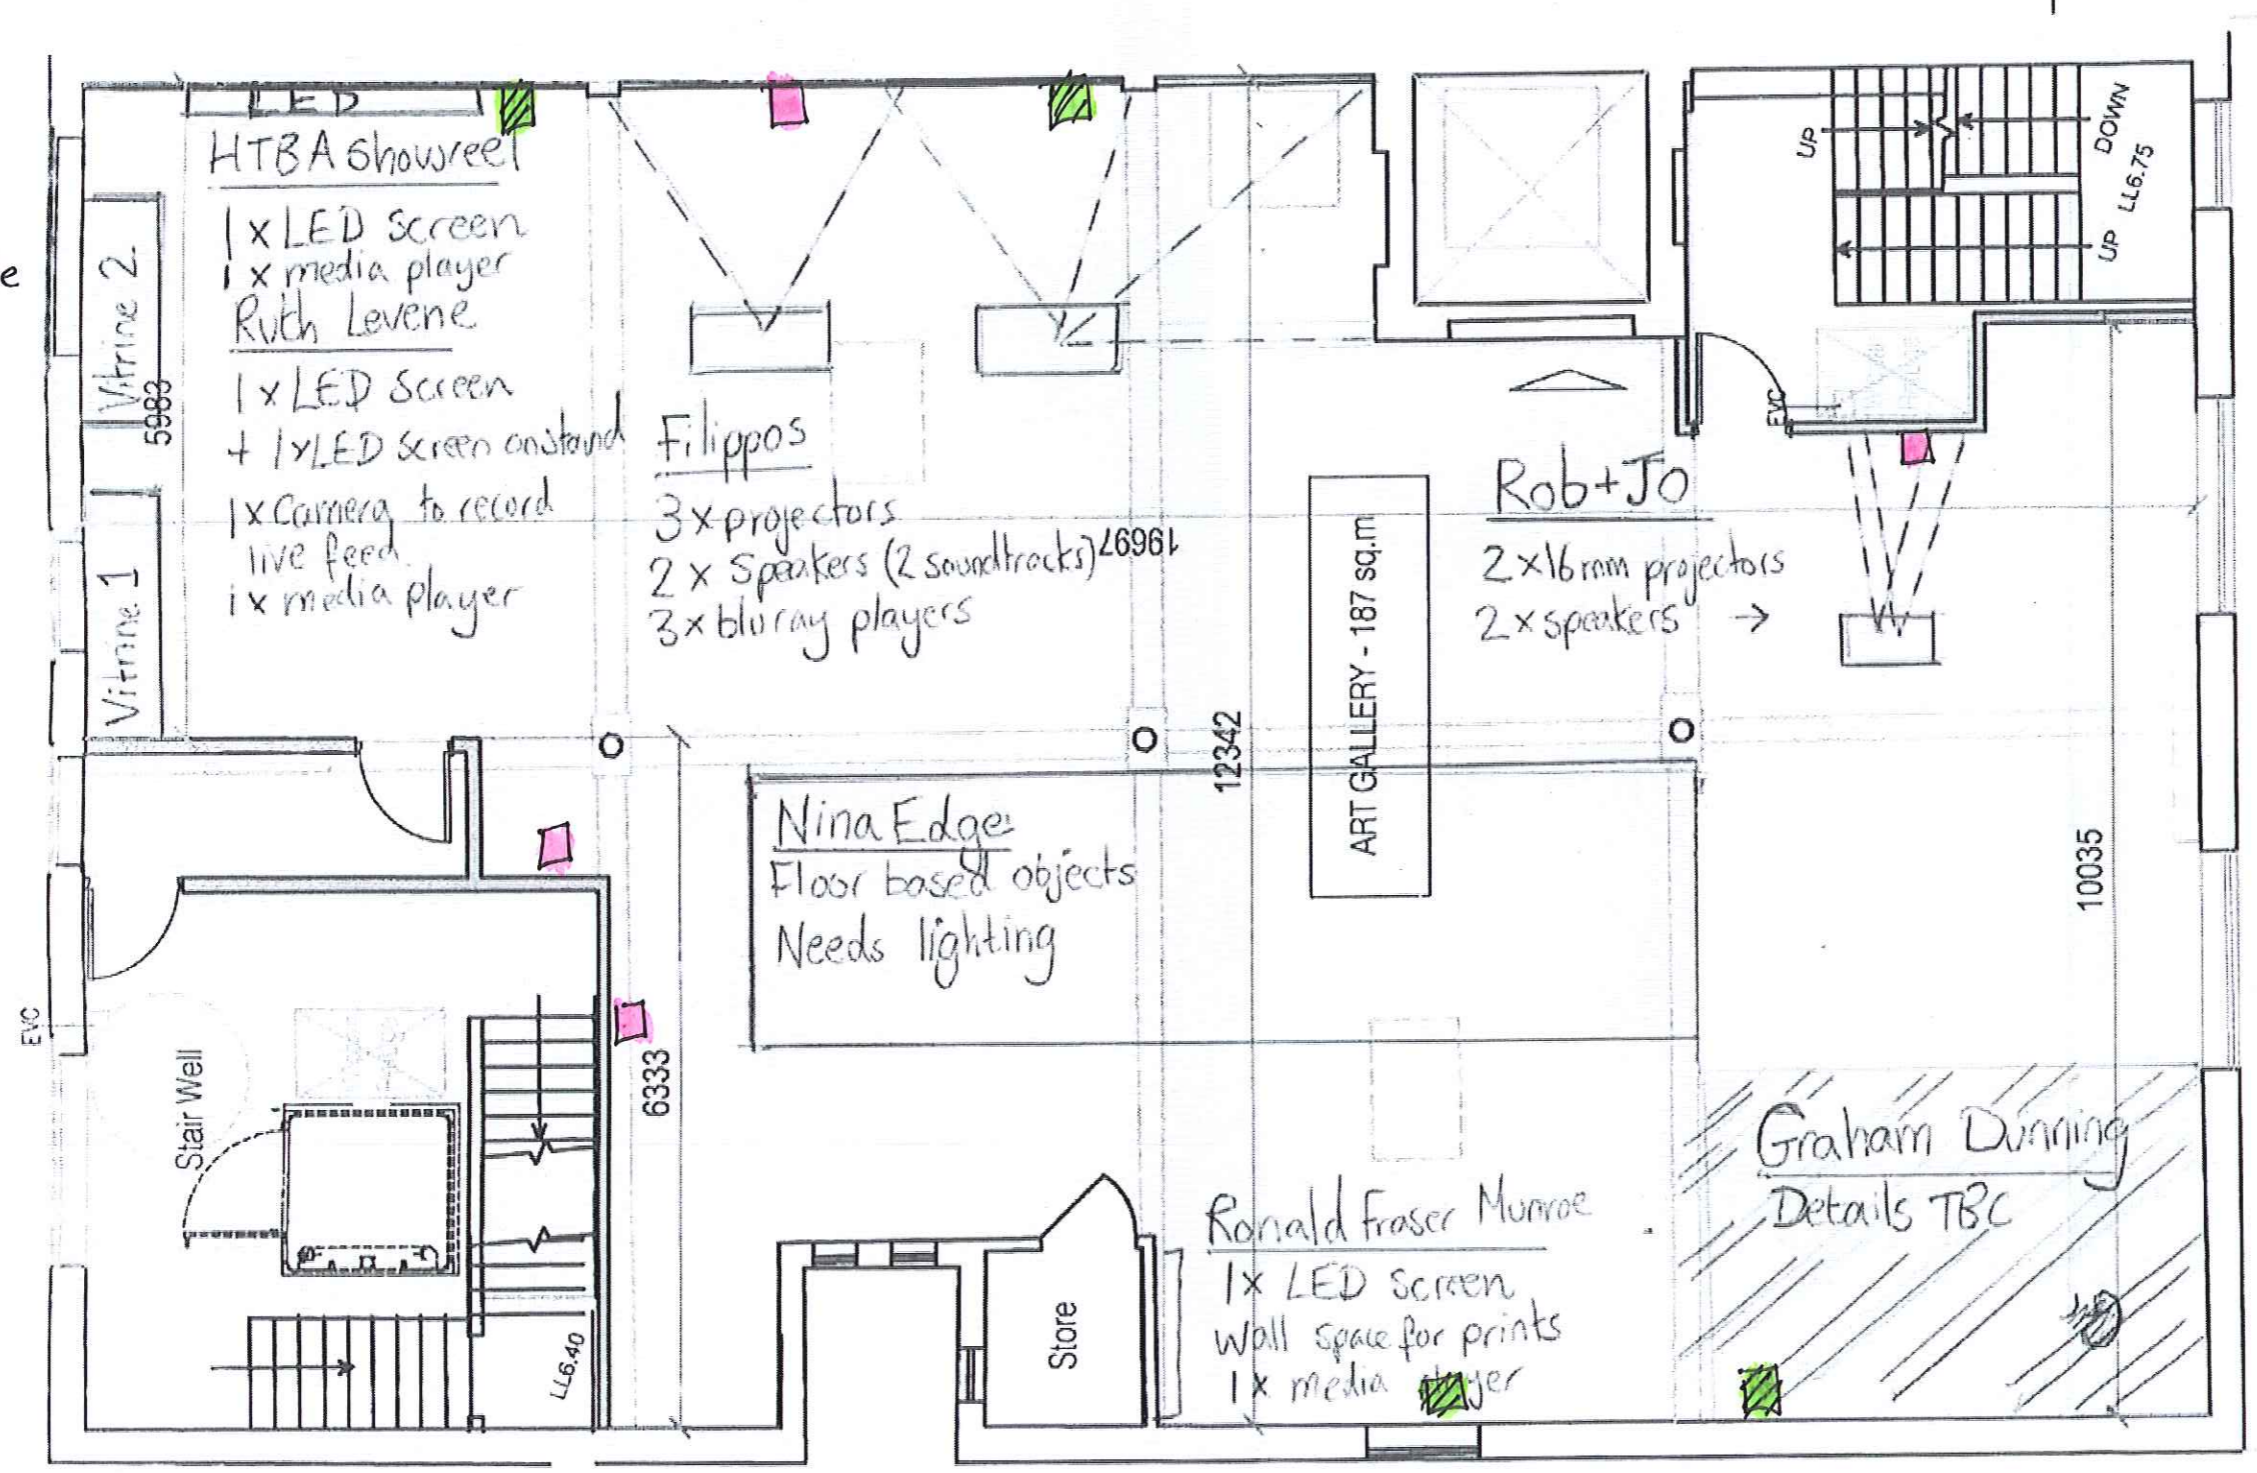 LED
HTBA Showreel
1 x LED Screen
1 x media player
Ruth Levene
1 x LED Screen
+ 1 x LED Screen on stand
1 x Camera to record
live feed.
1 x media player
e
Vitrine 2
5983
Vitrine 1
Filippos
3 x projectors
2 x Speakers (2 soundtracks)
3 x bluray players
19697
ART GALLERY - 187 sq.m
12342
Rob + Jo
2 x 16mm projectors
2 x speakers →
UP
DOWN
LL6.75
UP
EVC
10035
Nina Edge
Floor based objects
Needs lighting
6333
EVC
Stair Well
LL6.40
Store
Ronald Fraser Munroe
1x LED Screen
Wall space for prints
1x media player
Graham Dunning
Details TBC